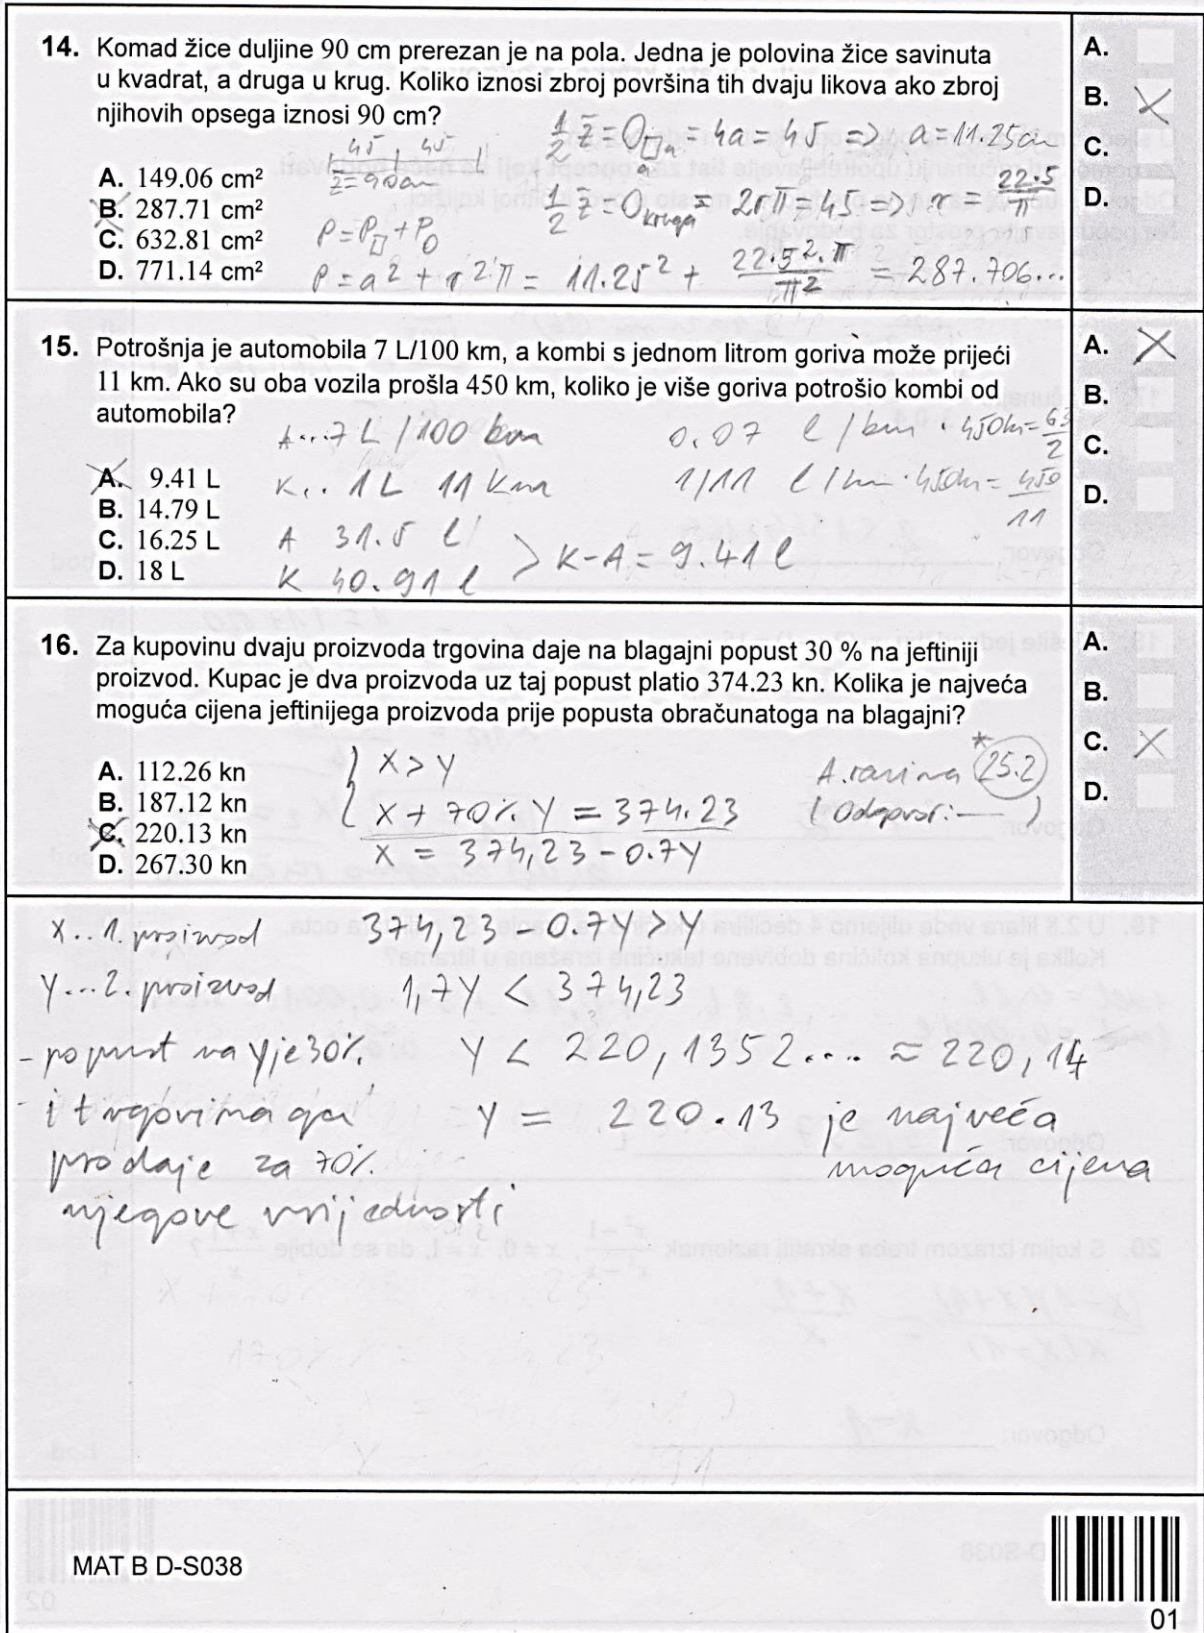 14. Komad žice duljine 90 cm prerezan je na pola. Jedna je polovina žice savinuta
u kvadrat, a druga u krug. Koliko iznosi zbroj površina tih dvaju likova ako zbroj
njihovih opsega iznosi 90 cm?
45 45
ž=90cm
½ ž = O□a = 4a = 45 => a = 11.25cm
A. 149.06 cm²
B. 287.71 cm²
C. 632.81 cm²
D. 771.14 cm²
½ ž = Okruga = 2rπ = 45 => r = 22.5/π
P = P□ + PO
P = a² + r²π = 11.25² + 22.5²·π/π² = 287.706...
A.
B. X
C.
D.
15. Potrošnja je automobila 7 L/100 km, a kombi s jednom litrom goriva može prijeći
11 km. Ako su oba vozila prošla 450 km, koliko je više goriva potrošio kombi od
automobila?
A...7 L/100 km 0.07 l/km · 450km = 63/2
A. 9.41 L
B. 14.79 L
C. 16.25 L
D. 18 L
K.. 1L 11 km 1/11 l/km · 450km = 450/11
A 31.5 l
K 40.91 l > K-A = 9.41 l
A. X
B.
C.
D.
16. Za kupovinu dvaju proizvoda trgovina daje na blagajni popust 30 % na jeftiniji
proizvod. Kupac je dva proizvoda uz taj popust platio 374.23 kn. Kolika je najveća
moguća cijena jeftinijega proizvoda prije popusta obračunatoga na blagajni?
A. 112.26 kn
B. 187.12 kn
C. 220.13 kn
D. 267.30 kn
X > Y
X + 70% Y = 374.23
X = 374,23 - 0.7Y
A. razina *25.2
(Odgovor: — )
A.
B.
C. X
D.
X.. 1. proizvod 374,23 - 0.7Y > Y
Y... 2. proizvod 1,7Y < 374,23
- popust na Y je 30% Y < 220,1352.... ≈ 220,14
i trgovina ga Y = 220.13 je najveća
prodaje za 70% moguća cijena
njegove vrijednosti
MAT B D-S038
01